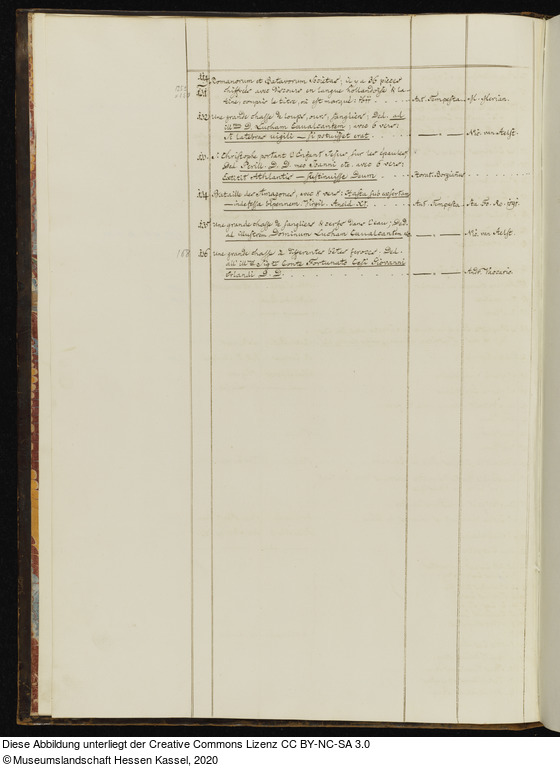 Romanorum et Batavorum Societas; il y a 36 pieces
chiffrées avec discours en langue hollandoise & la-
tine, compris le titre, où est marqué: 1611. Ant. Tempesta. M. Merian.
232 une grande chasse de loups, ours, sangliers: Ded. ad
D. Luckam Cavalcantem; avec 6 vers:
A latebras vigili — si potuisset erat. — " — Nic. van Aelst.
233 S. Christophe portant l'Enfant Jesus sur les épaules.
Ded. Perill. D. D. meo Joanni etc. avec 6 vers:
Extitit Athlantis — sustinuisse Deum. Horat. Borgianus
234 Bataille des Amazones, avec 8 vers: Hasta sub exsertam
— indefessa bipennem. Virgil. Aeneid. XI. Ant. Tempesta.
235 une grande chasse de sangliers & cerfs dans l'eau; Ded.
al illustrem Dominum Lucham Cavalcantem etc — " — Nic. van Aelst.
168 236 une grande chasse à differentes bêtes feroces. Ded.
all' Conte Fortunato Cesi
Orlandi D. D. — " — Andr. Vaccario.
Diese Abbildung unterliegt der Creative Commons Lizenz CC BY-NC-SA 3.0
©Museumslandschaft Hessen Kassel, 2020